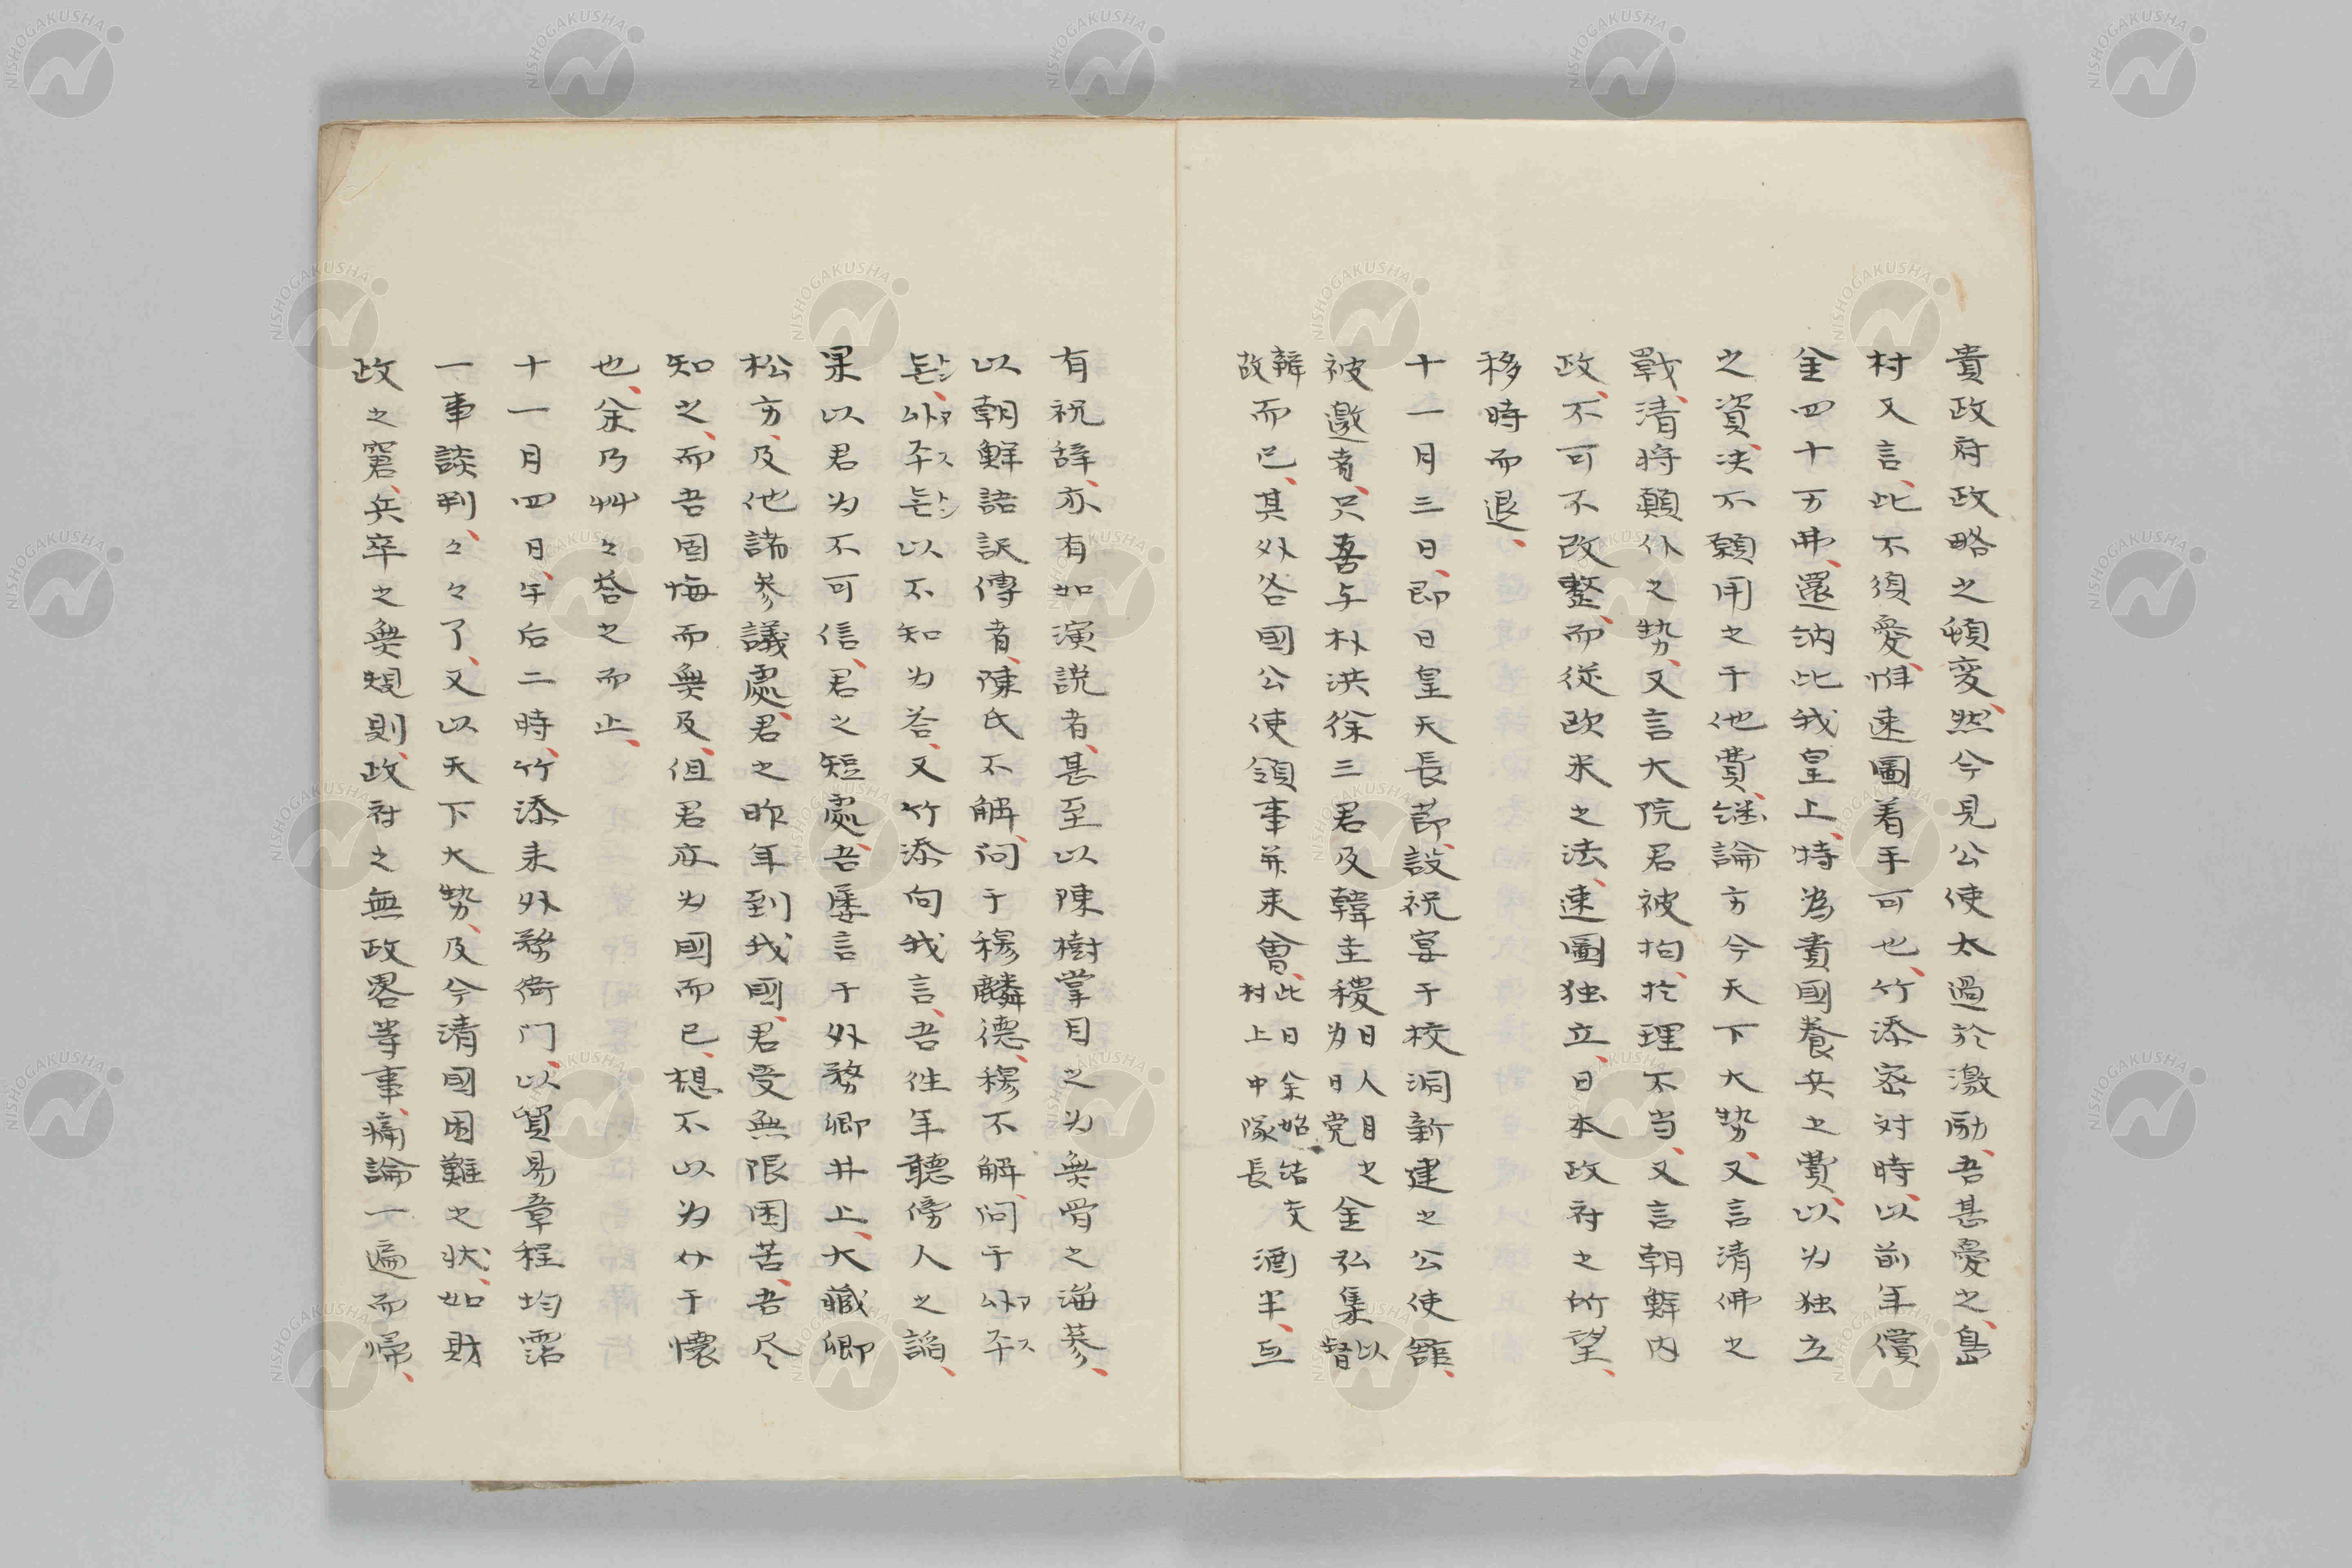 貴政府政略之頓変、然今見公使太過於激励、吾甚憂之、島
村又言、此不須憂、惟速圖着手可也、竹添密対時、以前年償
金四十万弗、還納比我皇上、特為貴國養兵之費、以為独立
之資、决不願用之于他費、継論方今天下大勢、又言清佛之
戦、清将顛仆之勢、又言大院君被拘、於理不当、又言朝鮮内
政、不可不改整、而従欧米之法、速圖独立、日本政府之所望、
移時而退、
十一月三日、即日皇天長節、設祝宴于校洞新建之公使館、
被邀者、只吾与朴洪徐三君及韓圭稷日人目之為日党金弘集以督
辦故而已、其外各國公使領事并来會、此日余始結交村上中隊長酒半、亙
有祝辞、亦有如演説者、甚至以陳樹棠目之为無骨之海蔘、
以朝鮮語訳傳者、陳氏不解、问于穆麟德、穆不解、问于아アᄌ스
ス 以不知为答、又竹添向我言、吾往年聽傍人之謟、
果以君为不可信、君之短處、吾屡言于外務卿井上、大藏卿
松方、及他諸参議處、君之昨年到我國、君受無限困苦、吾尽
知之、而吾固悔而無及、但君亦为國而已、想不以为介于懷
也、余乃艸々答之而止、
十一月四日、午后二時、竹添来外務衙门、以貿易章程均霑
一事談判、々々了、又以天下大勢、及今清國困難之状、如財
政之窘、兵卒之無規則、政府之無政畧等事、痛論一遍而帰、
NISHOGAKUSHA